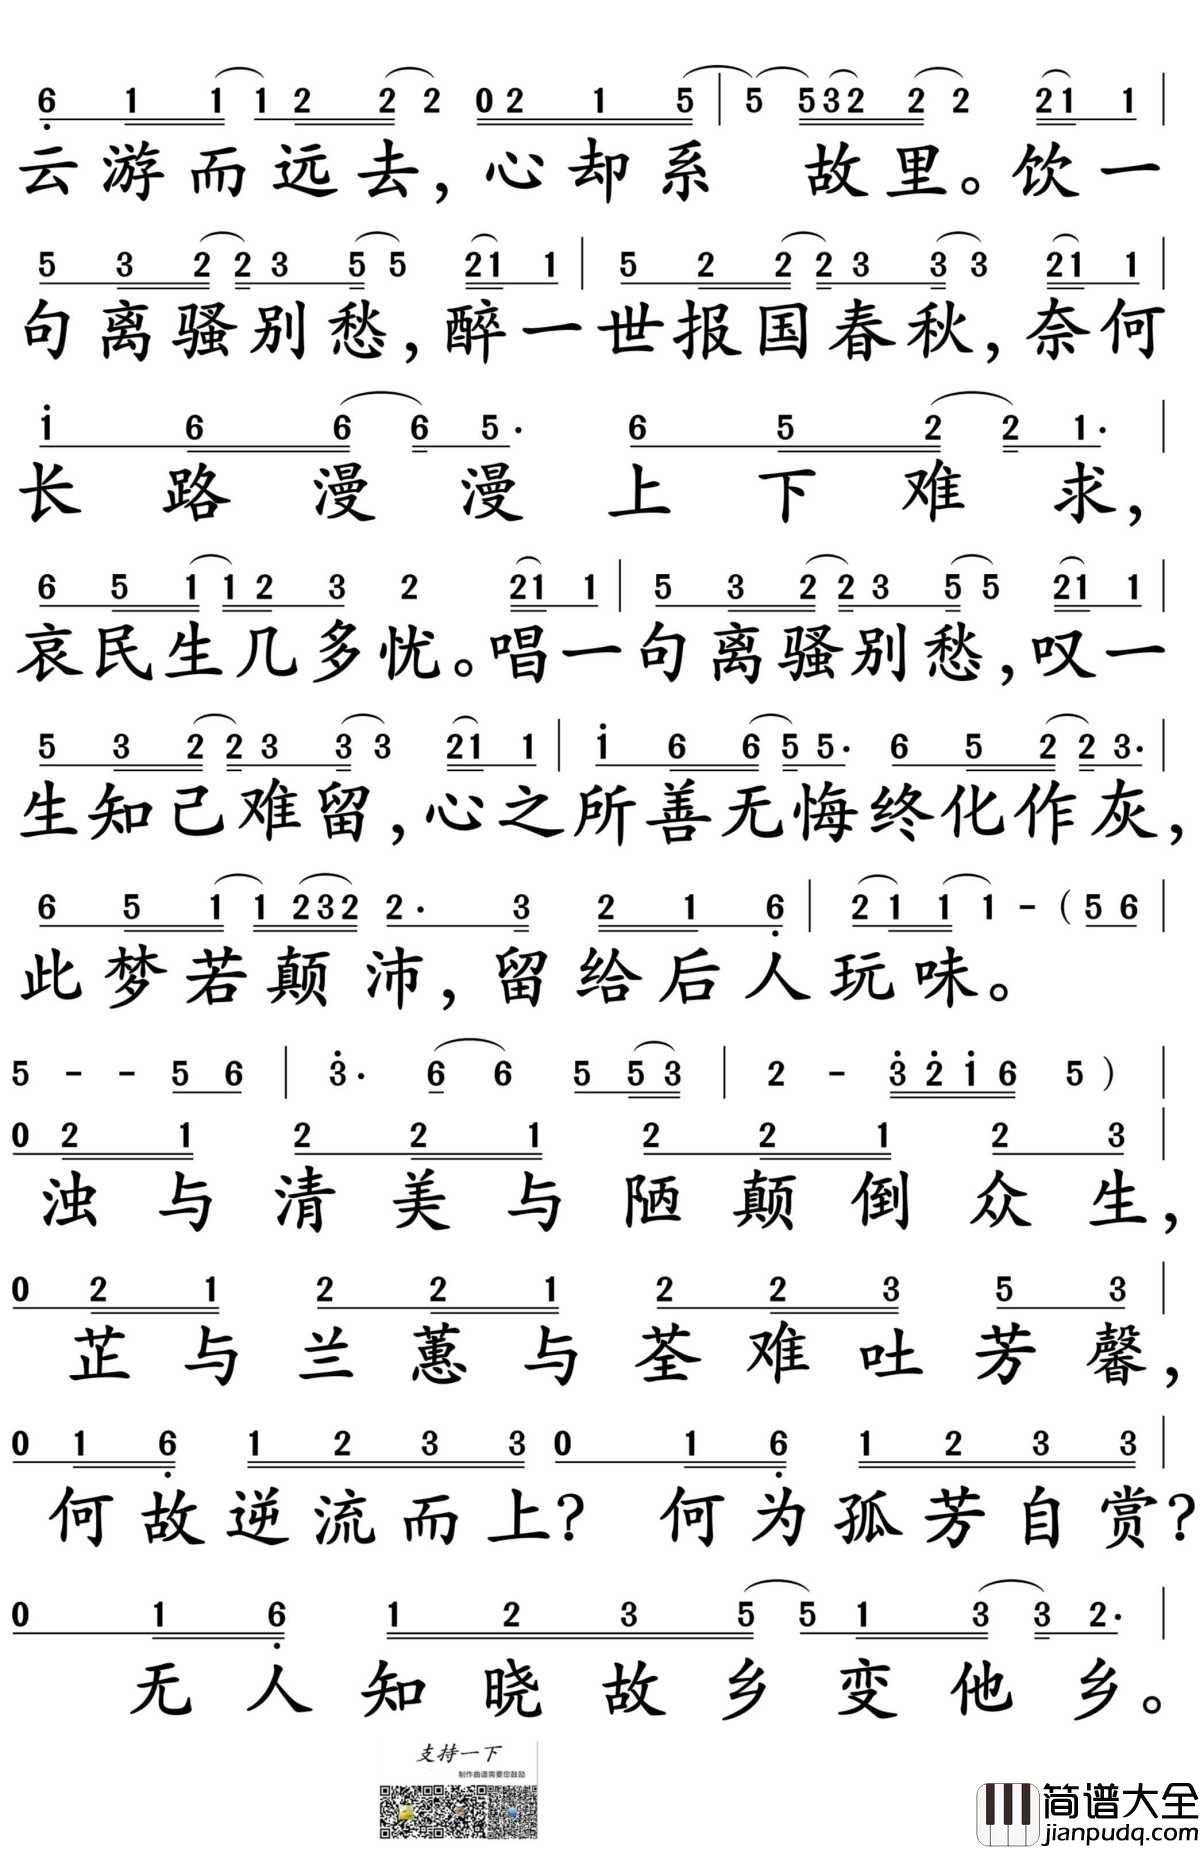 6 1 1 1 2 2 2 0 2 1 5 | 5 5 3 2 2 2 2 1 1 |
云游而远去,心却系 故里。饮一
5 3 2 2 3 5 5 2 1 1 | 5 2 2 2 3 3 3 2 1 1 |
句离骚别愁,醉一世报国春秋,奈何
1 6 6 6 5. 6 5 2 2 1. |
长路漫漫上下难求,
6 5 1 1 2 3 2 2 1 1 | 5 3 2 2 3 5 5 2 1 1 |
哀民生几多忧。唱一句离骚别愁,叹一
5 3 2 2 3 3 3 2 1 1 | 1 6 6 5 5. 6 5 2 2 3. |
生知己难留,心之所善无悔终化作灰,
6 5 1 1 2 3 2 2. 3 2 1 6 | 2 1 1 1 - ( 5 6 |
此梦若颠沛,留给后人玩味。
5 - - 5 6 | 3. 6 6 5 5 3 | 2 - 3 2 1 6 5 ) |
0 2 1 2 2 1 2 2 1 2 3 |
浊与清美与陋颠倒众生,
0 2 1 2 2 1 2 2 3 5 3 |
芷与兰蕙与荃难吐芳馨,
0 1 6 1 2 3 3 0 1 6 1 2 3 3 |
何故逆流而上? 何为孤芳自赏?
0 1 6 1 2 3 5 5 1 3 3 2. |
无人知晓故乡变他乡。
支持一下
制作曲谱需要您鼓励
简谱大全
jianpudq.com